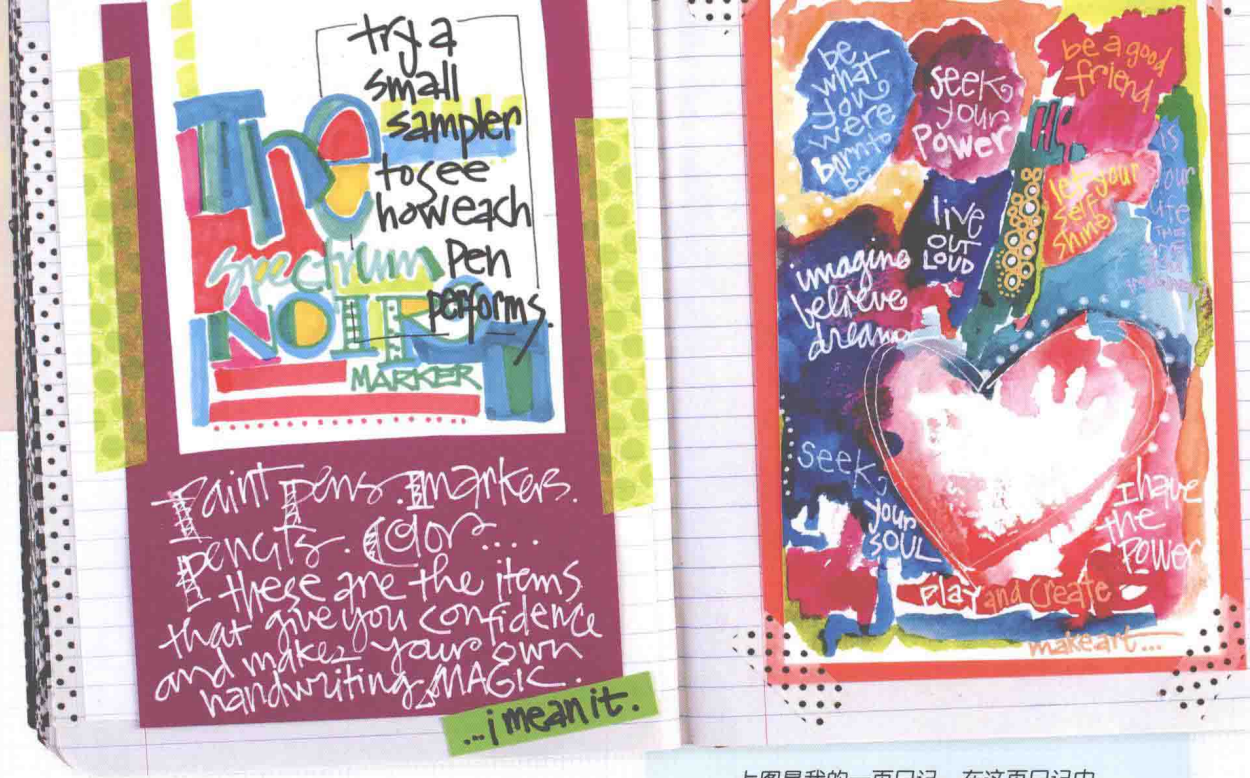 try a
small
sampler
to see
how each
pen
performs.
The
spectrum
NOIR
MARKER
Paint pens. markers.
pencils. Color....
these are the items
that give you confidence
and makes your own
handwriting MAGIC.
...i mean it.
be
what
you
were
born to
be
seek
your
Power
be a good
friend
live
OUT
LOUD
let your
self
shine
is
your
imagine
believe
dream
seek
your
SOUL
I have
the
Power
Play and Create
make art...
上图是我的一页日记，在这页日记中